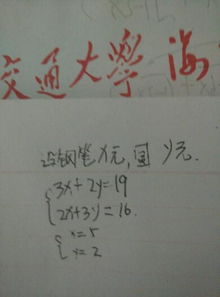 交通大學
设钢笔x元,圆y元.
3x+2y=19
2x+3y=16.
x=5
y=2